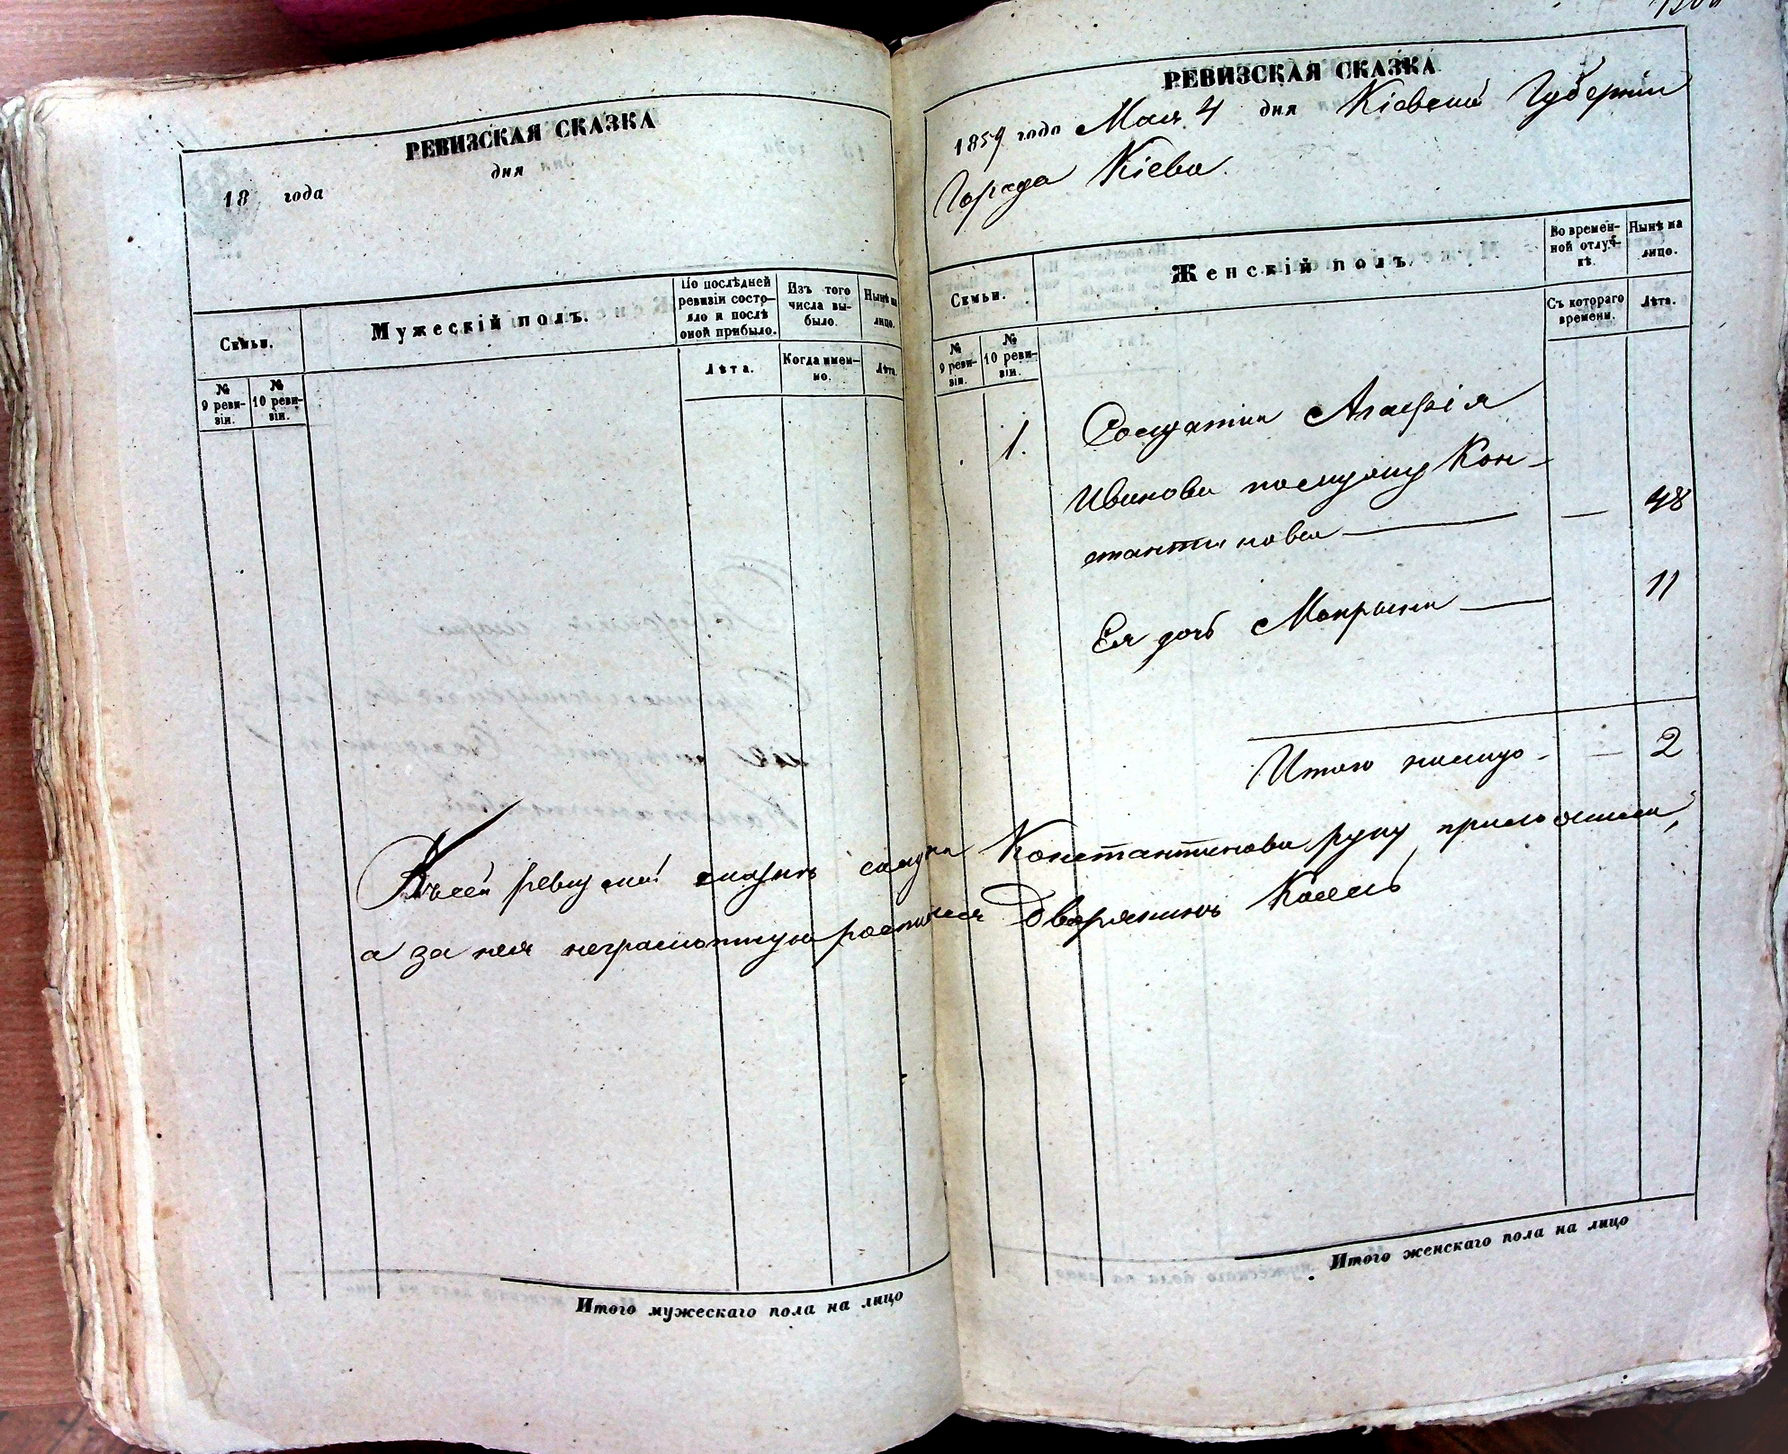 РЕВИЗСКАЯ СКАЗКА
18 года дня
Семьи.
Мужескій полъ.
По послѣдней ревизіи состояло и послѣ оной прибыло.
Изъ того числа выбыло.
Нынѣ на лицо.
№ 9 ревизіи.
№ 10 ревизіи.
Лѣта.
Когда именно.
Лѣта.
Итого мужескаго пола на лицо
РЕВИЗСКАЯ СКАЗКА
1859 года Мая 4 дня Кіевской Губерніи
Города Кіева.
Семьи.
Женскій полъ.
Во временной отлучкѣ.
Нынѣ на лицо.
№ 9 ревизіи.
№ 10 ревизіи.
Съ котораго времени.
Лѣта.
1. Солдатка Агафія
Иванова по мужу Кон-
стантинова — — 48
Ея дочь Макрина — 11
Итого на лицо - — 2
Къ сей ревизской сказкѣ солдатка Константинова руку приложила,
а за нея неграмотную росписался Дворянинъ
Итого женскаго пола на лицо